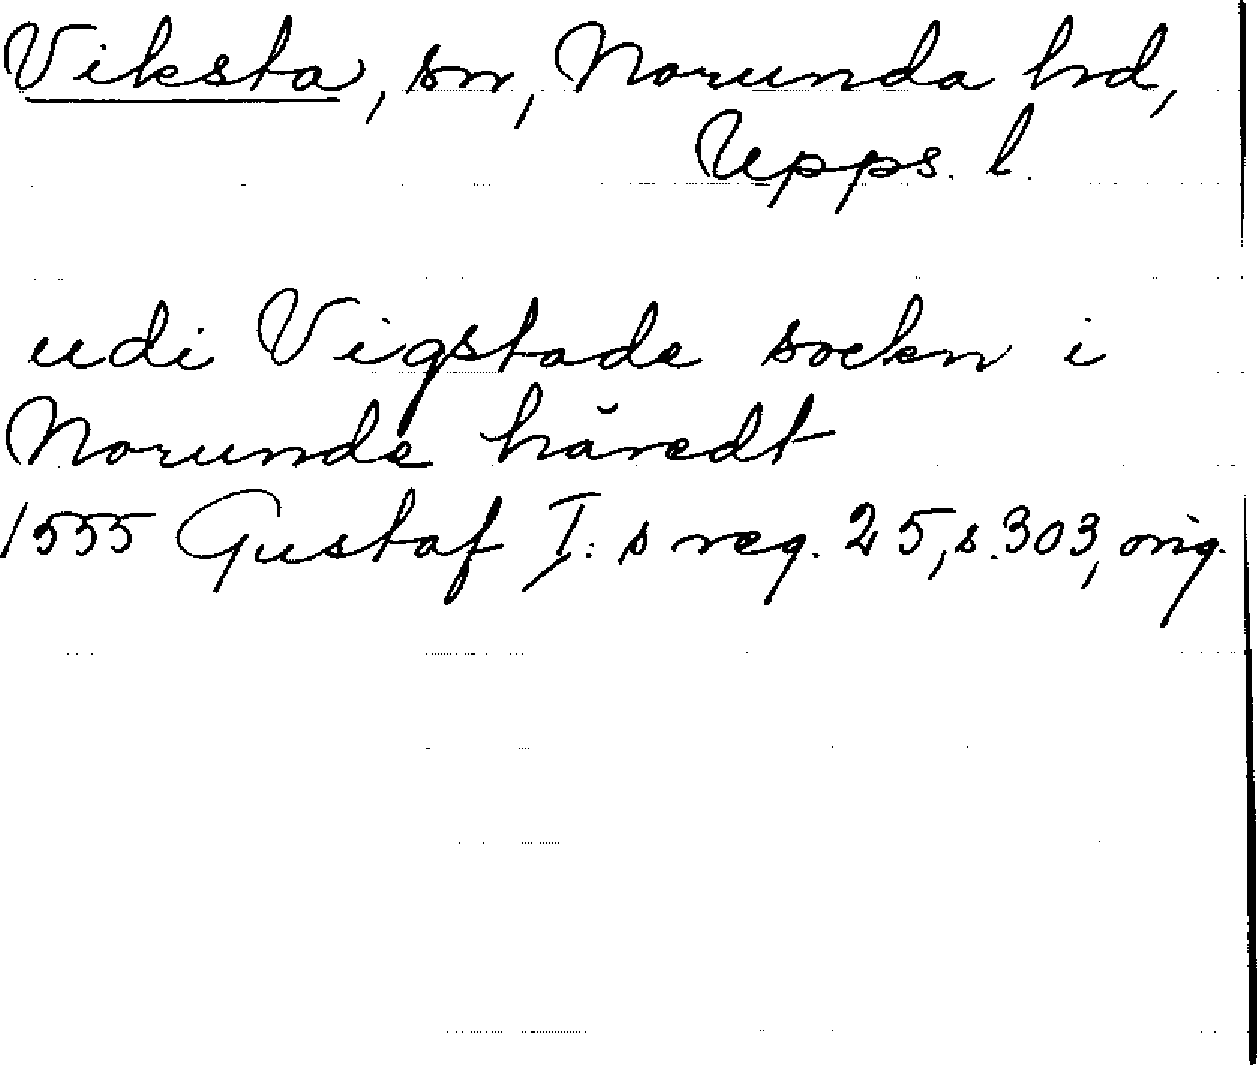 Viksta, sn, Norunda hd,
Upps. l.
udi Vigstade sockn i
Norunde häredt
1555 Gustaf I:s reg. 25, s. 303, orig.